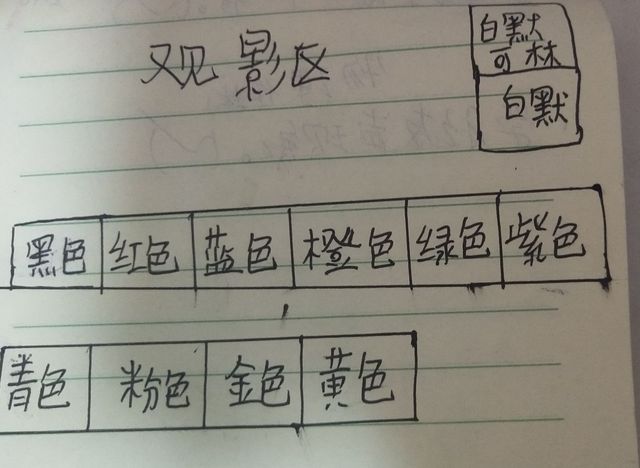 观影区
白默
可林
白默
黑色 红色 蓝色 橙色 绿色 紫色
青色 粉色 金色 黄色